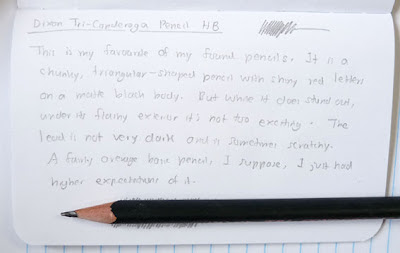 Dixon Tri-Conderoga Pencil HB
This is my favourite of my found pencils. It is a
chunky, triangular-shaped pencil with shiny red letters
on a matte black body. But while it does stand out,
under its flashy exterior it's not too exciting. The
lead is not very dark and is sometimes scratchy.
A fairly average base pencil, I suppose, I just had
higher expectations of it.